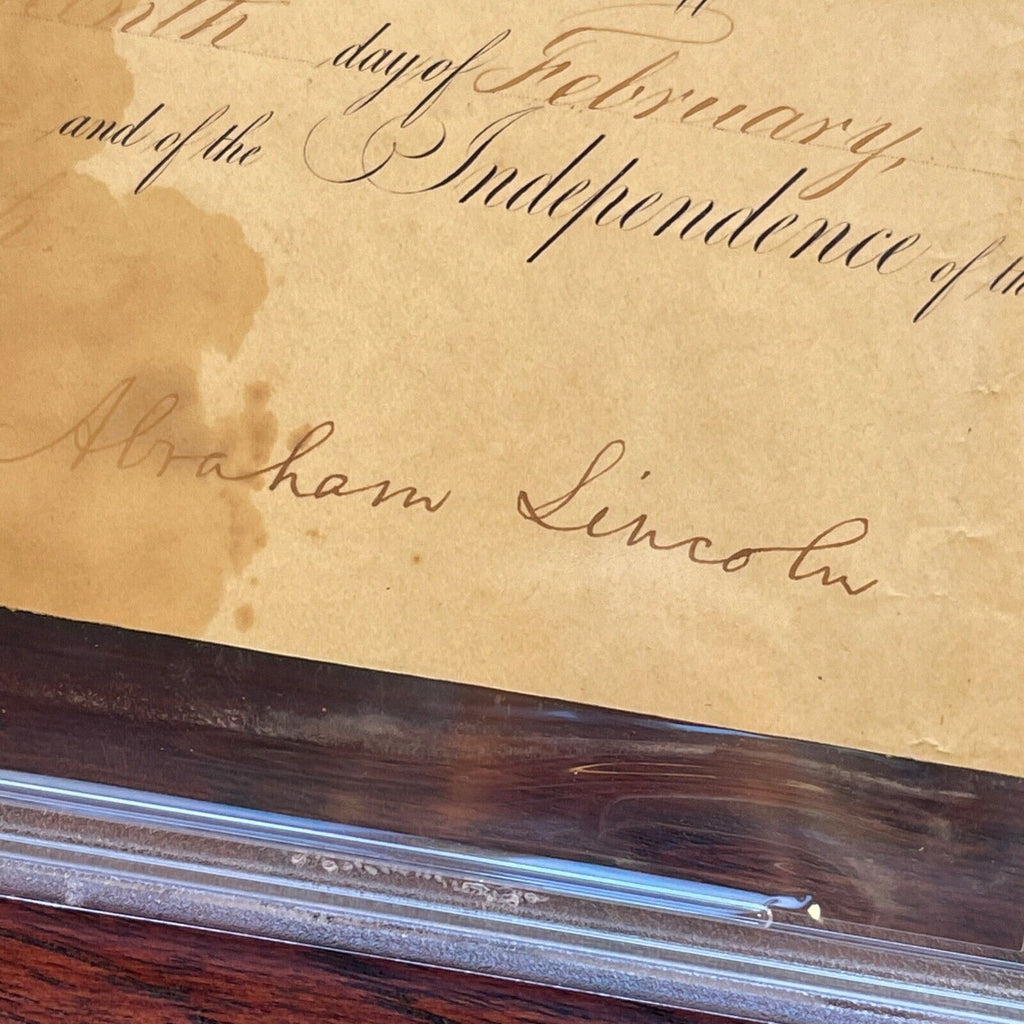 day of February,
and of the Independence of
Abraham Lincoln